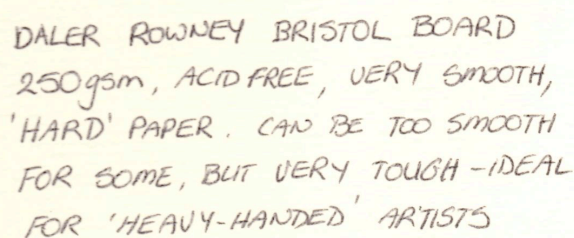 DALER ROWNEY BRISTOL BOARD
250gsm, ACID FREE, VERY SMOOTH,
'HARD' PAPER. CAN BE TOO SMOOTH
FOR SOME, BUT VERY TOUGH - IDEAL
FOR 'HEAVY-HANDED' ARTISTS